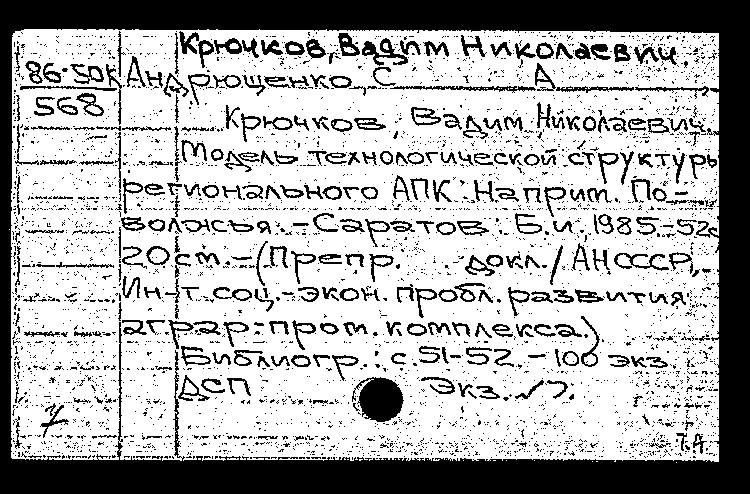 Крючков, Вадим Николаевич.
86-50К Андрющенко, С А
568
Крючков, Вадим Николаевич.
Модель технологической структуры
регионального АПК: На прим. По-
волжья. - Саратов: Б.и, 1985-52с,
20см. - (Препр. докл. / АН СССР,
Ин-т соц.-экон. пробл. развития
аграр.-пром. комплекса.)
Библиогр.: с. 51-52. - 100 экз.
ДСП Экз.
Т.А